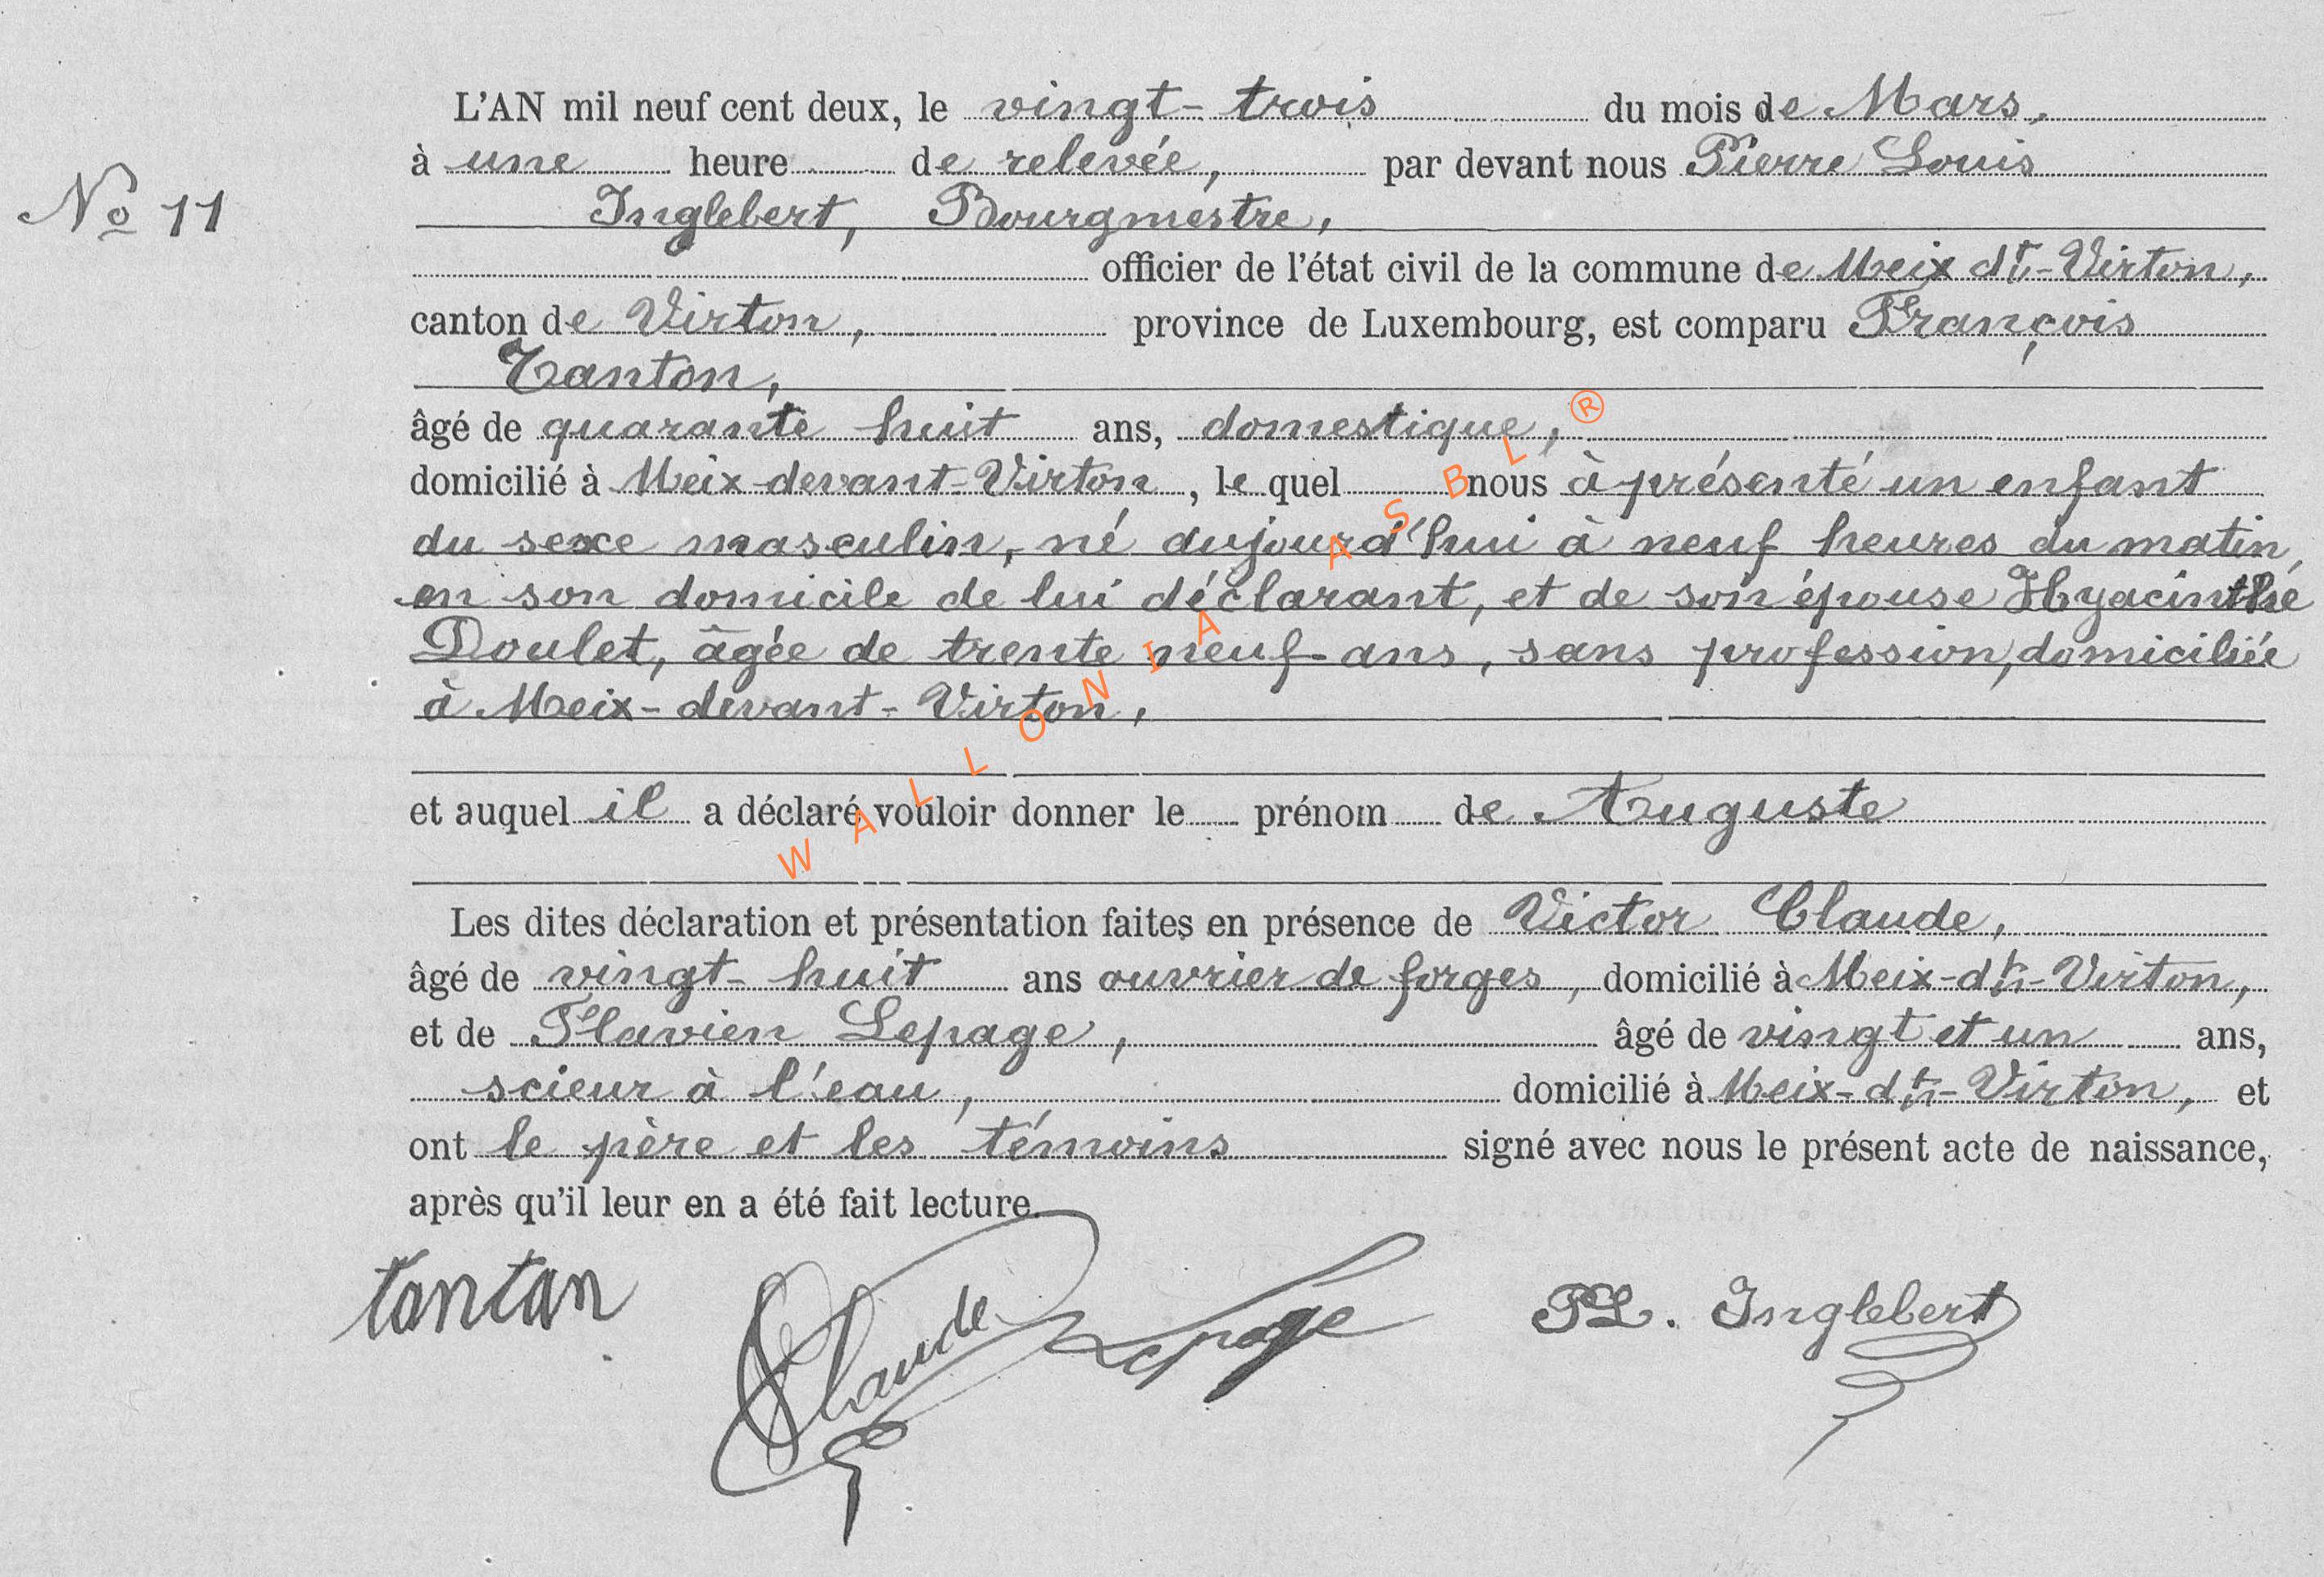 L'AN mil neuf cent deux, le vingt-trois du mois de Mars,
à une heure de relevée, par devant nous Pierre Louis
No 11
Inglebert, Bourgmestre,
officier de l'état civil de la commune de Meix dt-Virton,
canton de Virton, province de Luxembourg, est comparu François
Tanton,
âgé de quarante huit ans, domestique,
domicilié à Meix-devant-Virton, le quel nous à présenté un enfant
du sexe masculin, né aujourd'hui à neuf heures du matin,
en son domicile de lui déclarant, et de son épouse Hyacinthe
Doulet, âgée de trente neuf ans, sans profession, domiciliée
à Meix-devant-Virton,
et auquel il a déclaré vouloir donner le prénom de Auguste
Les dites déclaration et présentation faites en présence de Victor Claude,
âgé de vingt-huit ans ouvrier de forges, domicilié à Meix-dt-Virton,
et de Flavien Lepage, âgé de vingt et un ans,
scieur à l'eau, domicilié à Meix-dt-Virton, et
ont le père et les témoins signé avec nous le présent acte de naissance,
après qu'il leur en a été fait lecture.
tantan Claude Lepage PL. Inglebert
WALLONIA ASBL ®